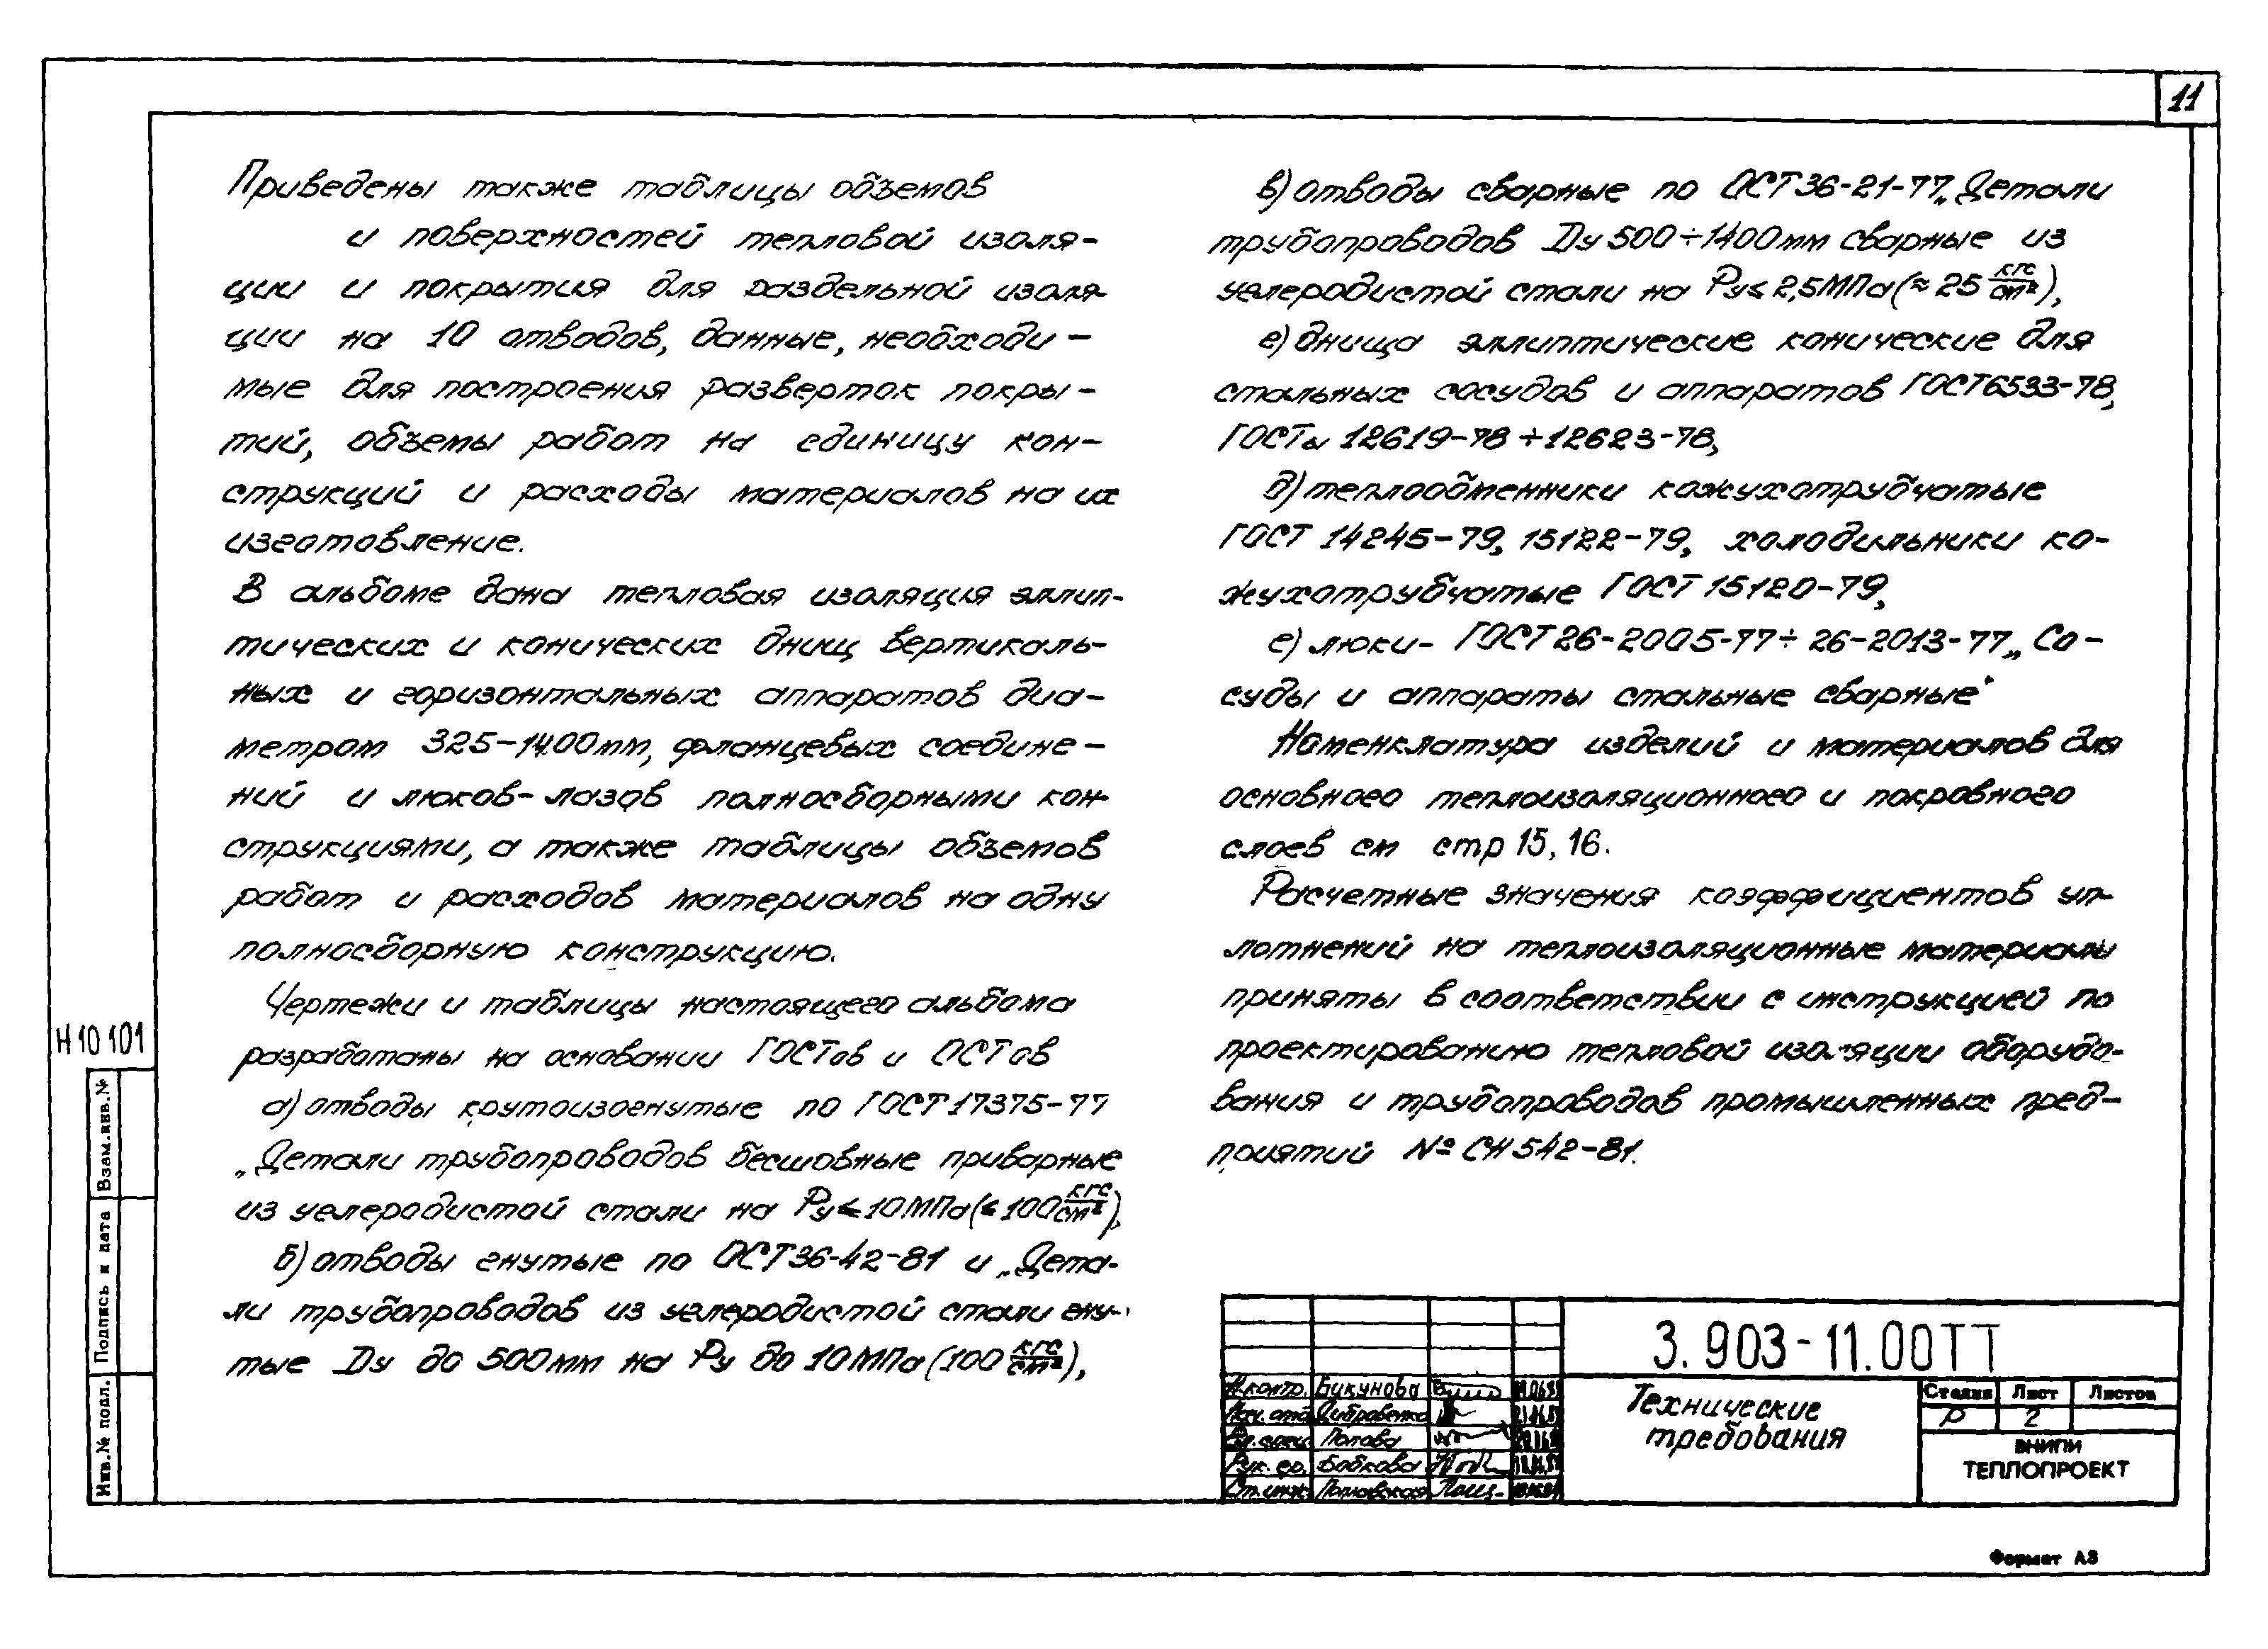 11
Приведены также таблицы объемов
и поверхностей тепловой изоля-
ции и покрытия для раздельной изоля-
ции на 10 отводов, данные, необходи-
мые для построения разверток покры-
тий, объемы работ на единицу кон-
струкций и расходы материалов на их
изготовление.
В альбоме дана тепловая изоляция эллип-
тических и конических днищ вертикаль-
ных и горизонтальных аппаратов диа-
метром 325-1400мм, фланцевых соедине-
ний и люков-лазов полносборными кон-
струкциями, а также таблицы объемов
работ и расходов материалов на одну
полносборную конструкцию.
Чертежи и таблицы настоящего альбома
разработаны на основании ГОСТов и ОСТов
а) отводы крутоизогнутые по ГОСТ 17375-77
„Детали трубопроводов бесшовные приварные
из углеродистой стали на Ру≤10МПа(≤100 кгс/см²),
б) отводы гнутые по ОСТ36-42-81 и „Дета-
ли трубопроводов из углеродистой стали гну-
тые Ду до 500мм на Ру до 10МПа (100 кгс/см²),
в) отводы сварные по ОСТ36-21-77„Детали
трубопроводов Ду 500÷1400мм сварные из
углеродистой стали на Ру≤2,5МПа(≈25 кгс/см²),
г) днища эллиптические конические для
стальных сосудов и аппаратов ГОСТ6533-78,
ГОСТы 12619-78÷12623-78,
д) теплообменники кожухотрубчатые
ГОСТ 14245-79, 15122-79, холодильники ко-
жухотрубчатые ГОСТ 15120-79,
е) люки- ГОСТ26-2005-77÷26-2013-77„Со-
суды и аппараты стальные сварные"
Номенклатура изделий и материалов для
основного теплоизоляционного и покровного
слоев см стр 15, 16.
Расчетные значения коэффициентов уп-
лотнений на теплоизоляционные материалы
приняты в соответствии с инструкцией по
проектированию тепловой изоляции оборудо-
вания и трубопроводов промышленных пред-
приятий № СН 542-81.
Н10101
Взам.инв.№
Подпись и дата
Инв.№ подл.
Н.контр. Букунова
Нач. отд.
Попова
Рук. гр. Бобкова
Ст. инж.
3.903-11.00ТТ
Технические
требования
Стадия Лист Листов
Р 2
ВНИПИ
ТЕПЛОПРОЕКТ
Формат А3